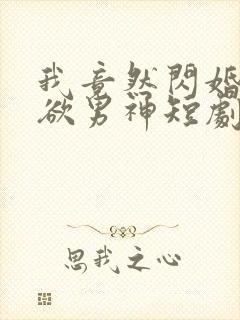 我竟然閃婚
欲男神短劇
思我之心